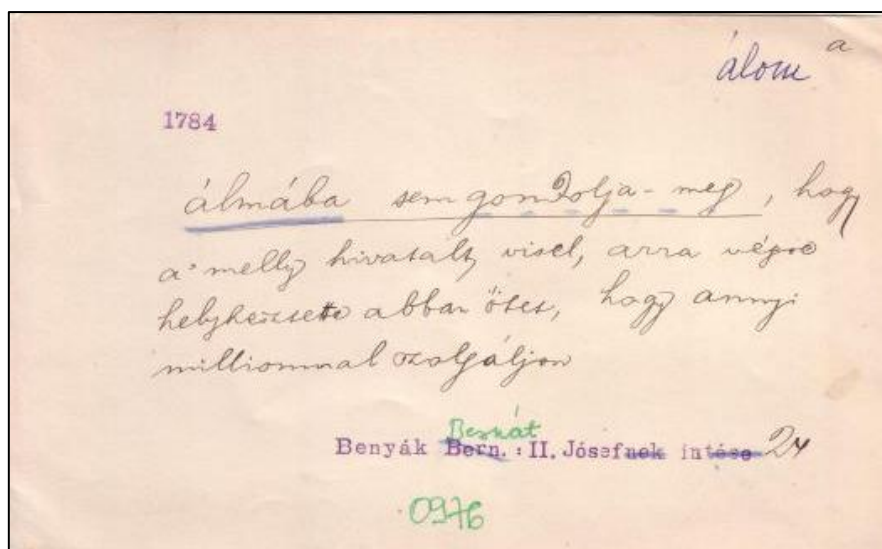 álom a
1784
álmába sem gondolja-meg, hogy
a' melly hivatalt visel, arra végre
helyheztette abban őtet, hogy annyi
milliomnal szolgáljon
Bernát
Benyák Bern. : II. Jósefnek intése 24
0976